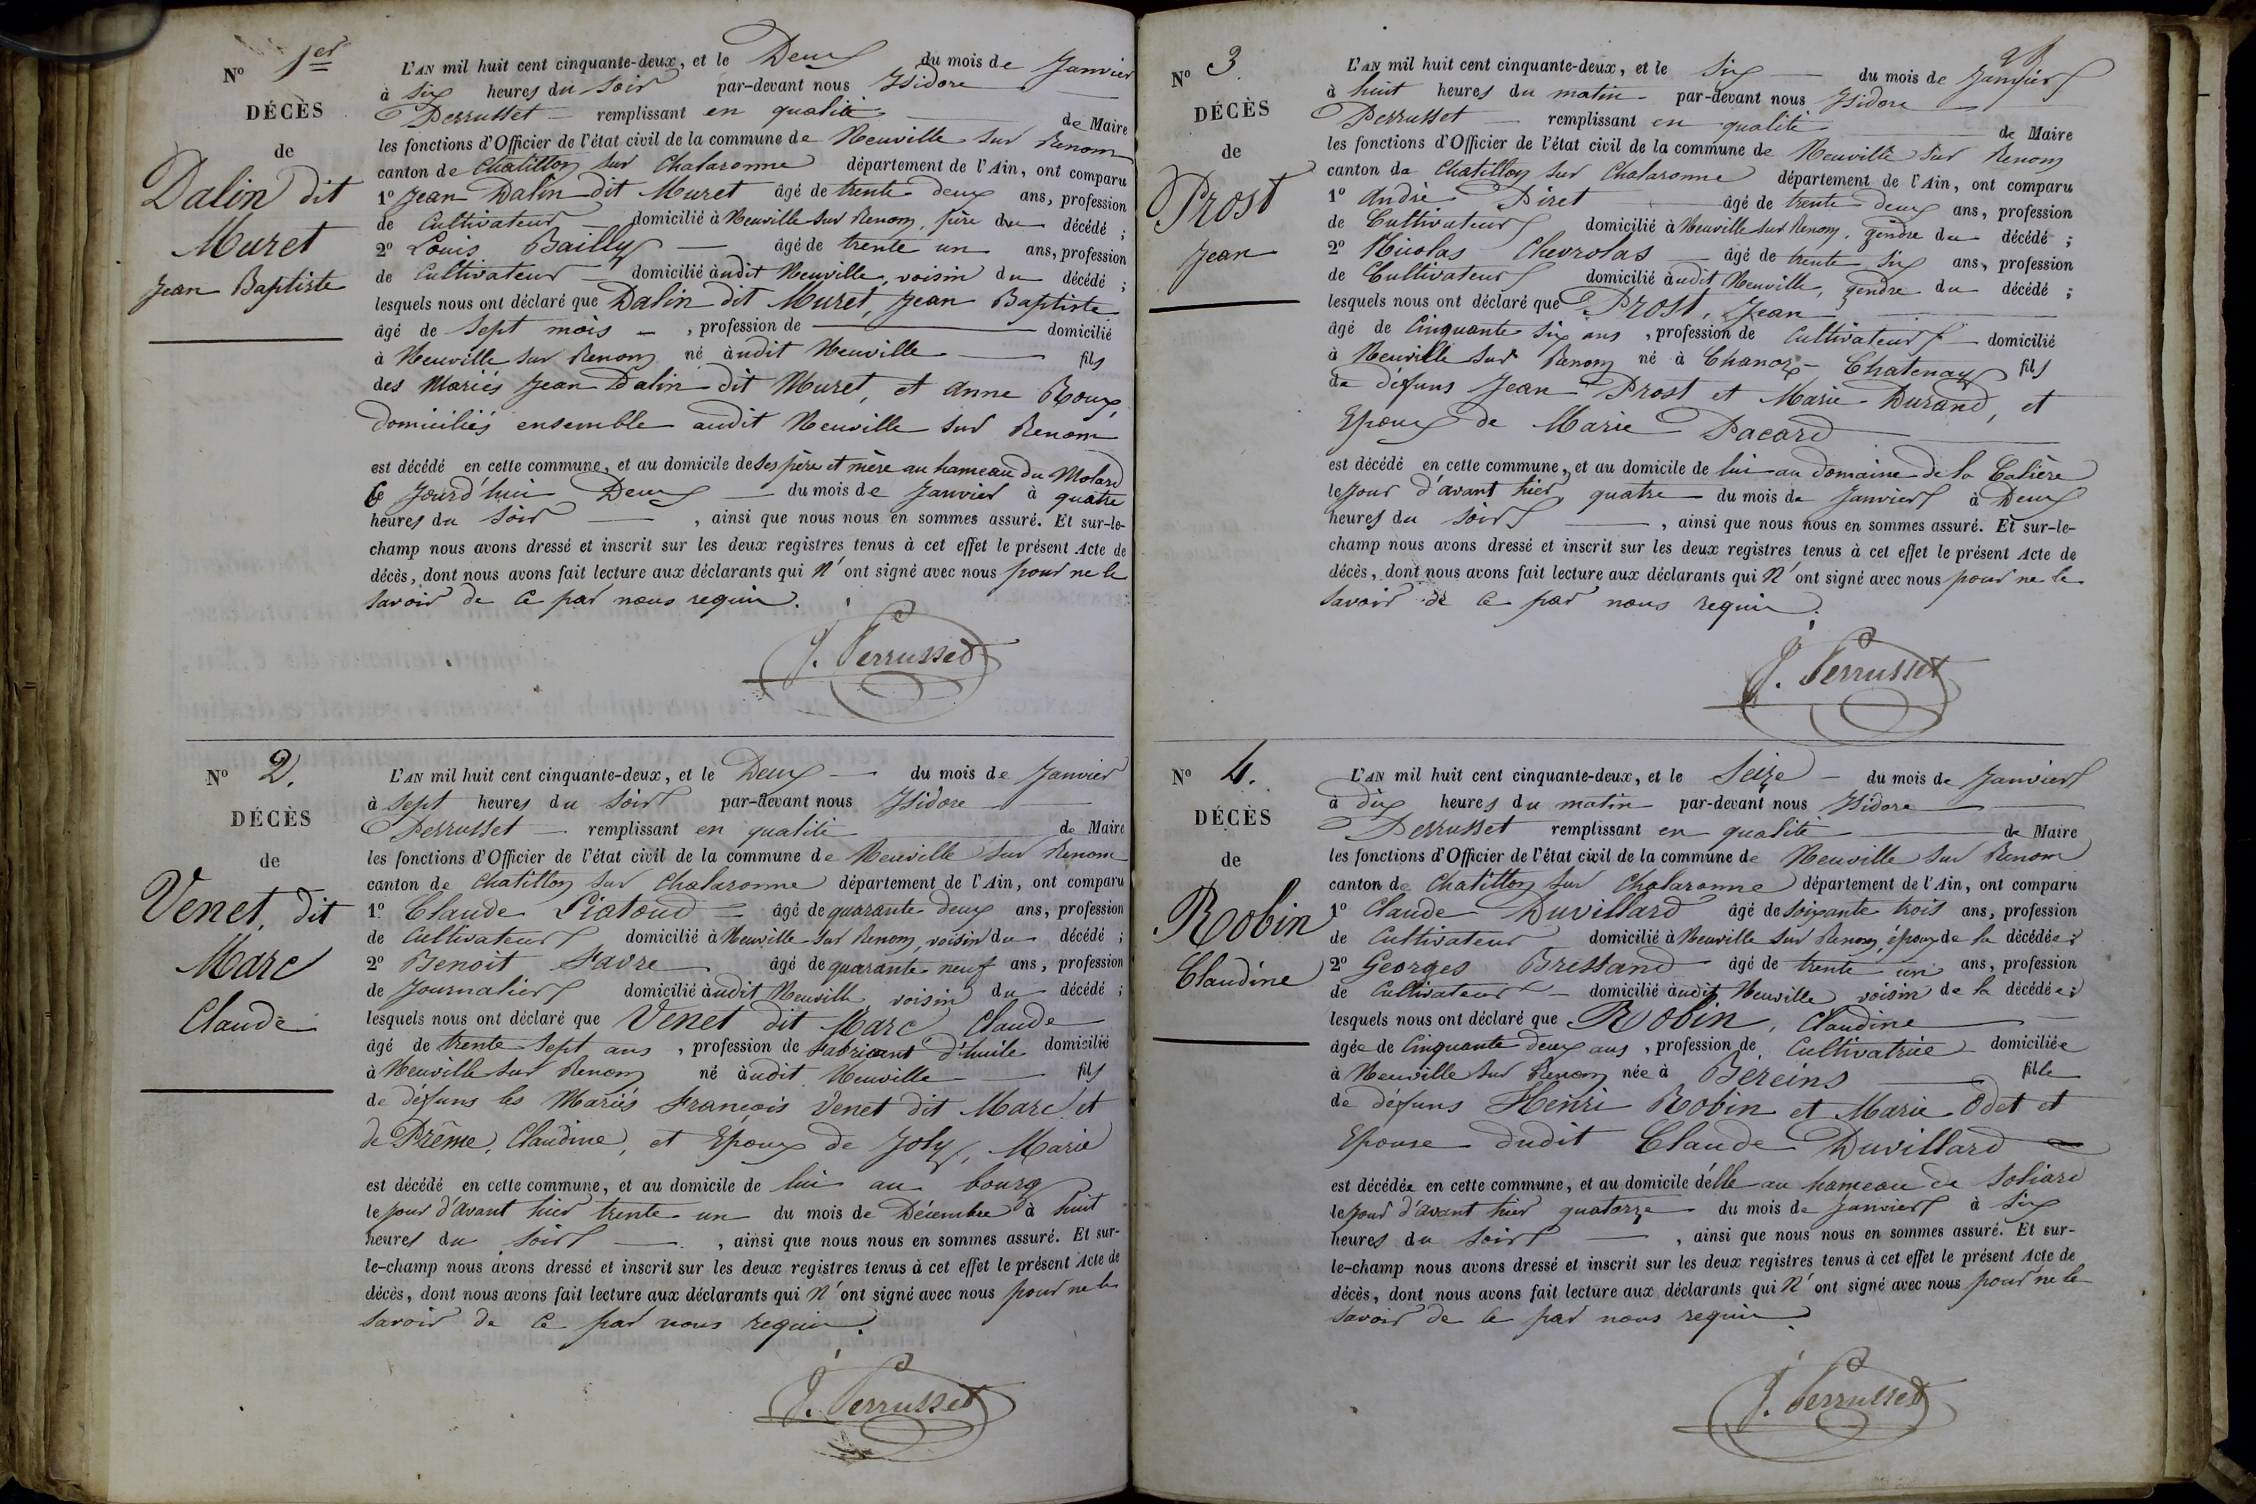 No 1er
DÉCÈS
de
Dalin dit
Muret
Jean Baptiste
L'AN mil huit cent cinquante-deux, et le Deux du mois de Janvier
à six heures du soir par-devant nous Isidore
Perrusset remplissant en qualité de Maire
les fonctions d'Officier de l'état civil de la commune de Neuville sur Renom
canton de Chatillon sur Chalaronne département de l'Ain, ont comparu
1º Jean Dalin dit Muret âgé de trente deux ans, profession
de Cultivateur domicilié à Neuville sur Renom, père du décédé ;
2º Louis Bailly âgé de trente un ans, profession
de Cultivateur domicilié àudit Neuville, voisin du décédé ;
lesquels nous ont déclaré que Dalin dit Muret, Jean Baptiste
âgé de sept mois , profession de domicilié
à Neuville sur Renom né àudit Neuville fils
des Mariés Jean Dalin dit Muret, et Anne Roux,
domiciliés ensemble audit Neuville sur Renom
est décédé en cette commune, et au domicile de ses père et mère au hameau du Molard
ce Jourd'hui Deux du mois de Janvier à quatre
heures du soir , ainsi que nous nous en sommes assuré. Et sur-le-
champ nous avons dressé et inscrit sur les deux registres tenus à cet effet le présent Acte de
décès, dont nous avons fait lecture aux déclarants qui n'ont signé avec nous pour ne le
savoir de ce par nous requis.
J. Perrusset
No 2.
DÉCÈS
de
Venet, dit
Marc
Claude
L'AN mil huit cent cinquante-deux, et le Deux du mois de Janvier
à sept heures du soir par-devant nous Isidore
Perrusset remplissant en qualité de Maire
les fonctions d'Officier de l'état civil de la commune de Neuville sur Renom
canton de Chatillon sur Chalaronne département de l'Ain, ont comparu
1º Claude Piotoud âgé de quarante deux ans, profession
de Cultivateur domicilié à Neuville sur Renom, voisin du décédé ;
2º Benoit Favre âgé de quarante neuf ans, profession
de Journalier domicilié àudit Neuville voisin du décédé ;
lesquels nous ont déclaré que Venet dit Marc Claude
âgé de trente sept ans , profession de fabricant d'huile domicilié
à Neuville sur Renom né àudit Neuville fils
de défuns les Mariés François Venet dit Marc et
de Prême, Claudine, et Epoux de Joly, Marie
est décédé en cette commune, et au domicile de lui au bourg
le jour d'avant hier trente un du mois de Décembre à huit
heures du soir , ainsi que nous nous en sommes assuré. Et sur-
le-champ nous avons dressé et inscrit sur les deux registres tenus à cet effet le présent Acte de
décès, dont nous avons fait lecture aux déclarants qui n'ont signé avec nous pour ne le
savoir de ce par nous requis.
J. Perrusset
No 3
DÉCÈS
de
Prost
Jean
L'AN mil huit cent cinquante-deux, et le six du mois de Janvier
à huit heures du matin par-devant nous Isidore
Perrusset remplissant en qualité de Maire
les fonctions d'Officier de l'état civil de la commune de Neuville sur Renom
canton de Chatillon sur Chalaronne département de l'Ain, ont comparu
1º André Piret âgé de trente deux ans, profession
de Cultivateur domicilié à Neuville sur Renom, gendre du décédé ;
2º Nicolas Chevrolas âgé de trente six ans, profession
de Cultivateur domicilié àudit Neuville, gendre du décédé ;
lesquels nous ont déclaré que Prost, Jean
âgé de Cinquante six ans , profession de Cultivateur domicilié
à Neuville sur Renom né à Chanoz-Chatenay fils
de défuns Jean Prost et Marie Durand, et
Epoux de Marie Pacard
est décédé en cette commune, et au domicile de lui au domaine de la
le jour d'avant hier, quatre du mois de Janvier à Deux
heures du soir , ainsi que nous nous en sommes assuré. Et sur-le-
champ nous avons dressé et inscrit sur les deux registres tenus à cet effet le présent Acte de
décès, dont nous avons fait lecture aux déclarants qui n'ont signé avec nous pour ne le
savoir de ce par nous requis.
J. Perrusset
No 4.
DÉCÈS
de
Robin
Claudine
L'AN mil huit cent cinquante-deux, et le Seize du mois de Janvier
à dix heures du matin par-devant nous Isidore
Perrusset remplissant en qualité de Maire
les fonctions d'Officier de l'état civil de la commune de Neuville sur Renom
canton de Chatillon sur Chalaronne département de l'Ain, ont comparu
1º Claude Duvillard âgé de soixante trois ans, profession
de Cultivateur domicilié à Neuville sur Renom, époux de la décédée ;
2º Georges Bressand âgé de trente un ans, profession
de Cultivateur domicilié àudit Neuville voisin de la décédée ;
lesquels nous ont déclaré que Robin, Claudine
âgée de Cinquante deux ans , profession de Cultivatrice domiciliée
à Neuville sur Renom née à Bereins fille
de défuns Henri Robin et Marie Odet et
Epouse dudit Claude Duvillard
est décédée en cette commune, et au domicile d'elle au hameau de Soliard
le jour d'avant hier quatorze du mois de Janvier à six
heures du soir , ainsi que nous nous en sommes assuré. Et sur-
le-champ nous avons dressé et inscrit sur les deux registres tenus à cet effet le présent Acte de
décès, dont nous avons fait lecture aux déclarants qui n'ont signé avec nous pour ne le
savoir de ce par nous requis.
J. Perrusset